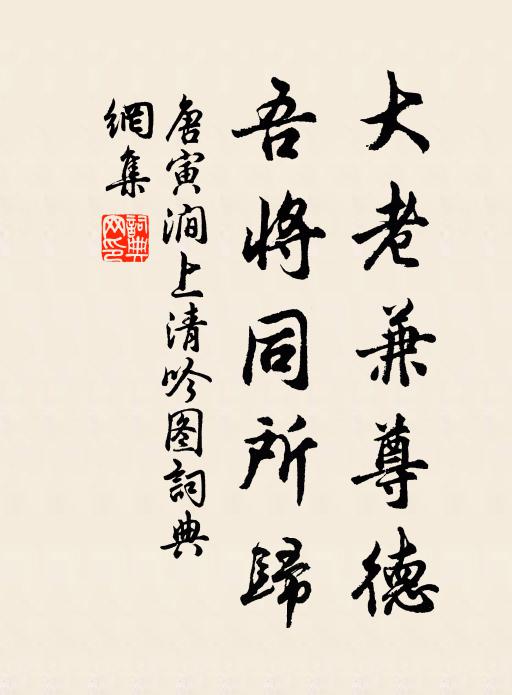 大老兼尊德
吾將同所歸
唐寅澗上清吟图詞典
網集
詞典
网印